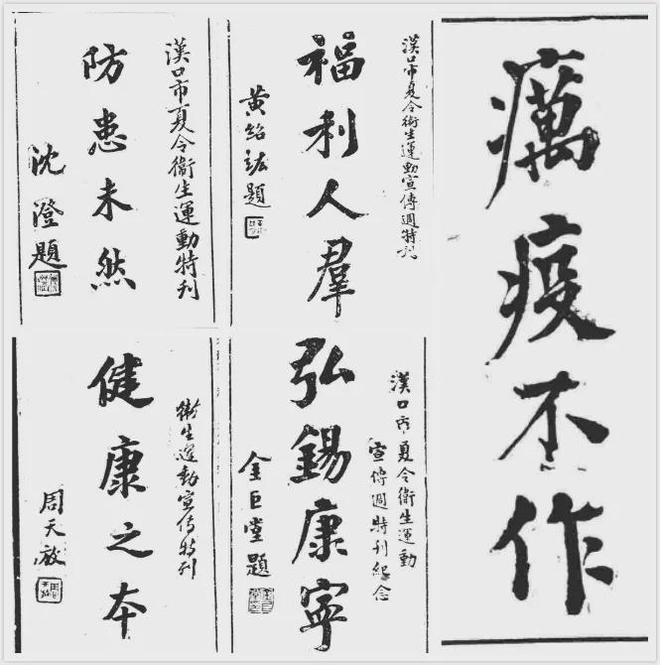 癘疫不作
漢口市夏令衛生運動宣傳週特刊
福利人羣
黃紹竑題
漢口市夏令衛生運動特刊
防患未然
沈澄題
漢口市夏令衛生運動
宣傳週特刊紀念
弘錫康寧
金巨堂題
衛生運動宣傳特刊
健康之本
周天放